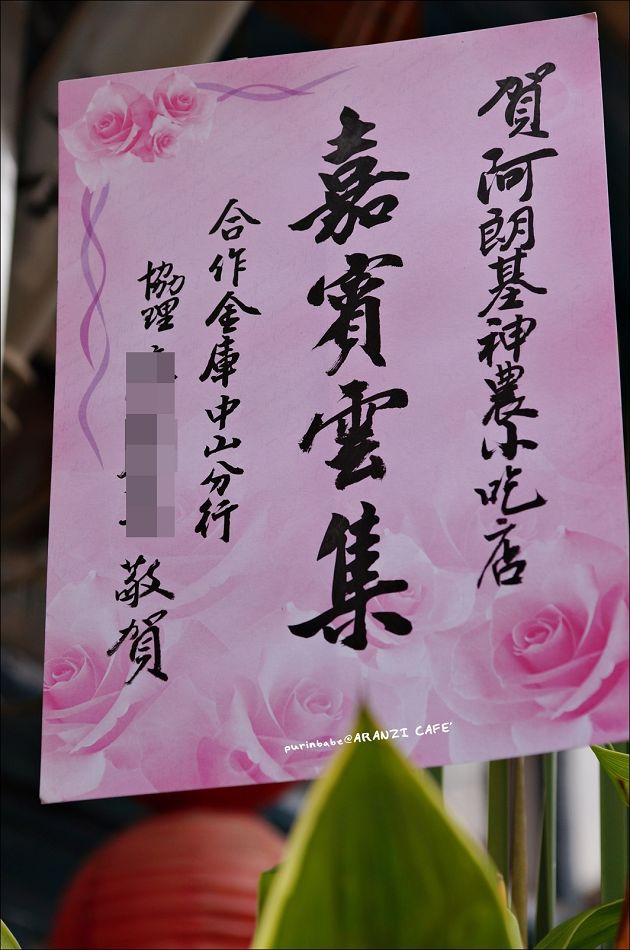 賀阿朗基神農小吃店
嘉賓雲集
合作金庫中山分行
協理
敬賀
purinbabe@ARANZI CAFE'